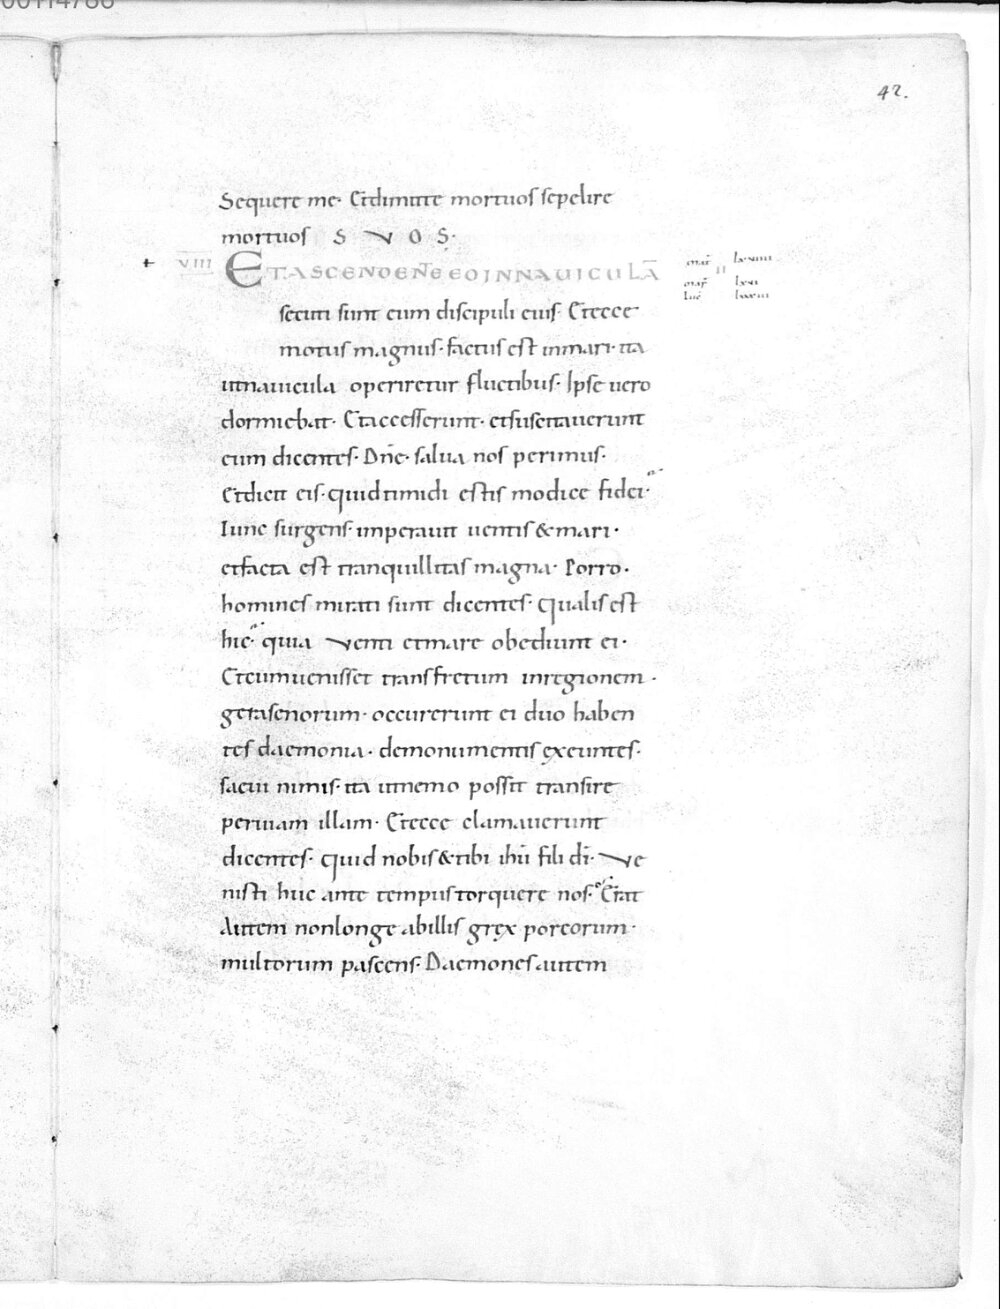 42.
Sequere me· Et dimitte mortuos sepelire
mortuos S V O S·
VIII ET ASCENDENTE EO IN NAUICULĀ
secuti sunt eum discipuli eius· Et ecce
motus magnus· factus est in mari· ita
ut nauicula operiretur fluctibus· Ipse uero
dormiebat· Et accesserunt· et suscitauerunt
eum dicentes· Dn̄e· salua nos perimus·
Et dicit eis· quid timidi estis modice fidei·
Tunc surgens· imperauit uentis & mari·
et facta est tranquillitas magna· Porro·
homines mirati sunt dicentes· qualis est
hic· quia Venti et mare obediunt ei·
Et cum uenisset transfretum in regionem·
gerasenorum· occurerunt ei duo haben
tes daemonia· de monumentis exeuntes·
saeui nimis· ita ut nemo possit transire
per uiam illam· Et ecce clamauerunt
dicentes· quid nobis & tibi ih̄u fili dī· Ve
nisti huc ante tempus torquere nos· Erat
Autem non longe ab illis grex porcorum·
multorum pascens· Daemones autem